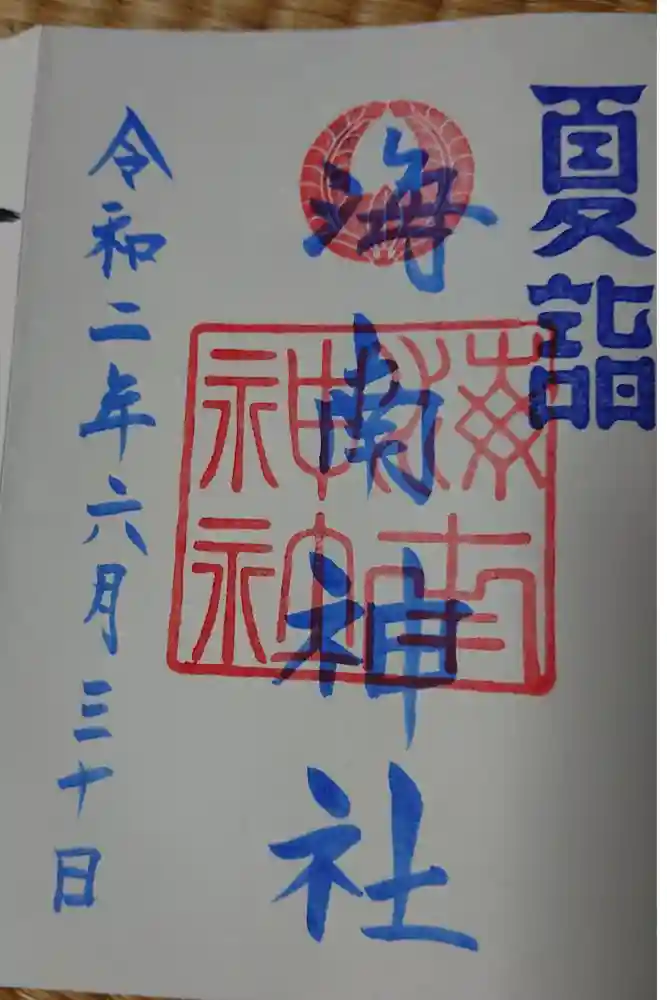 夏詣
海南神社
海南
神社
令和二年六月三十日